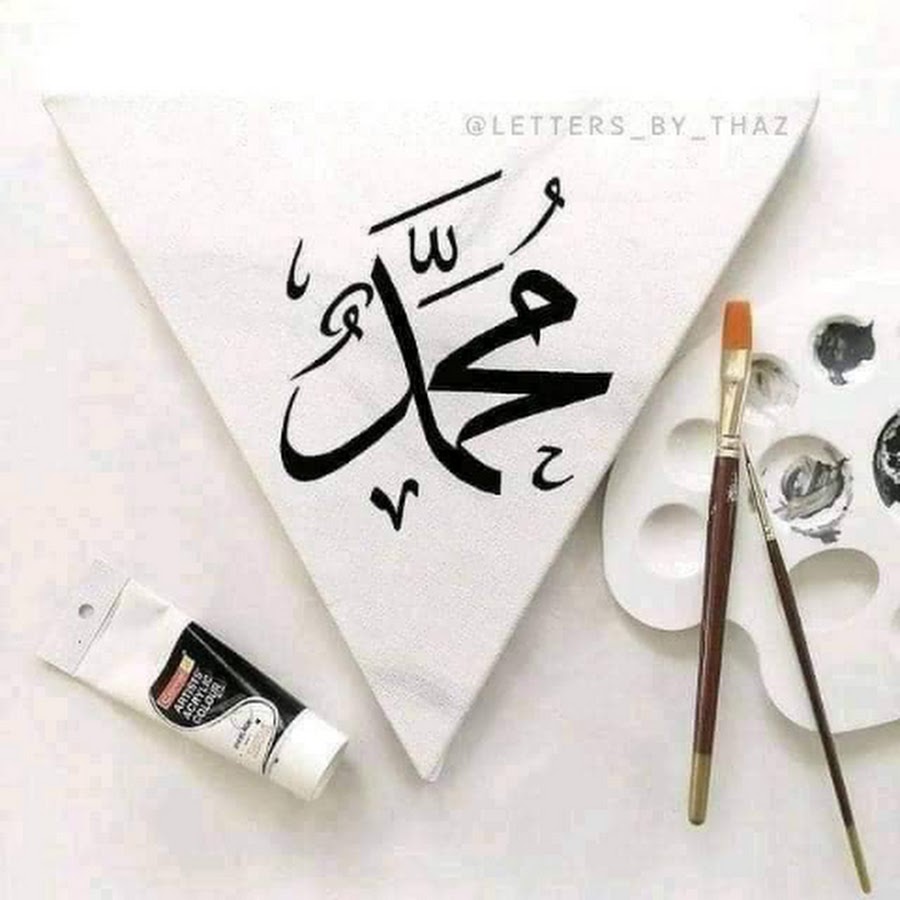 @LETTERS_BY_THAZ
مُحَمَّدٌ
ARTISTS'
ACRYLIC
COLOUR